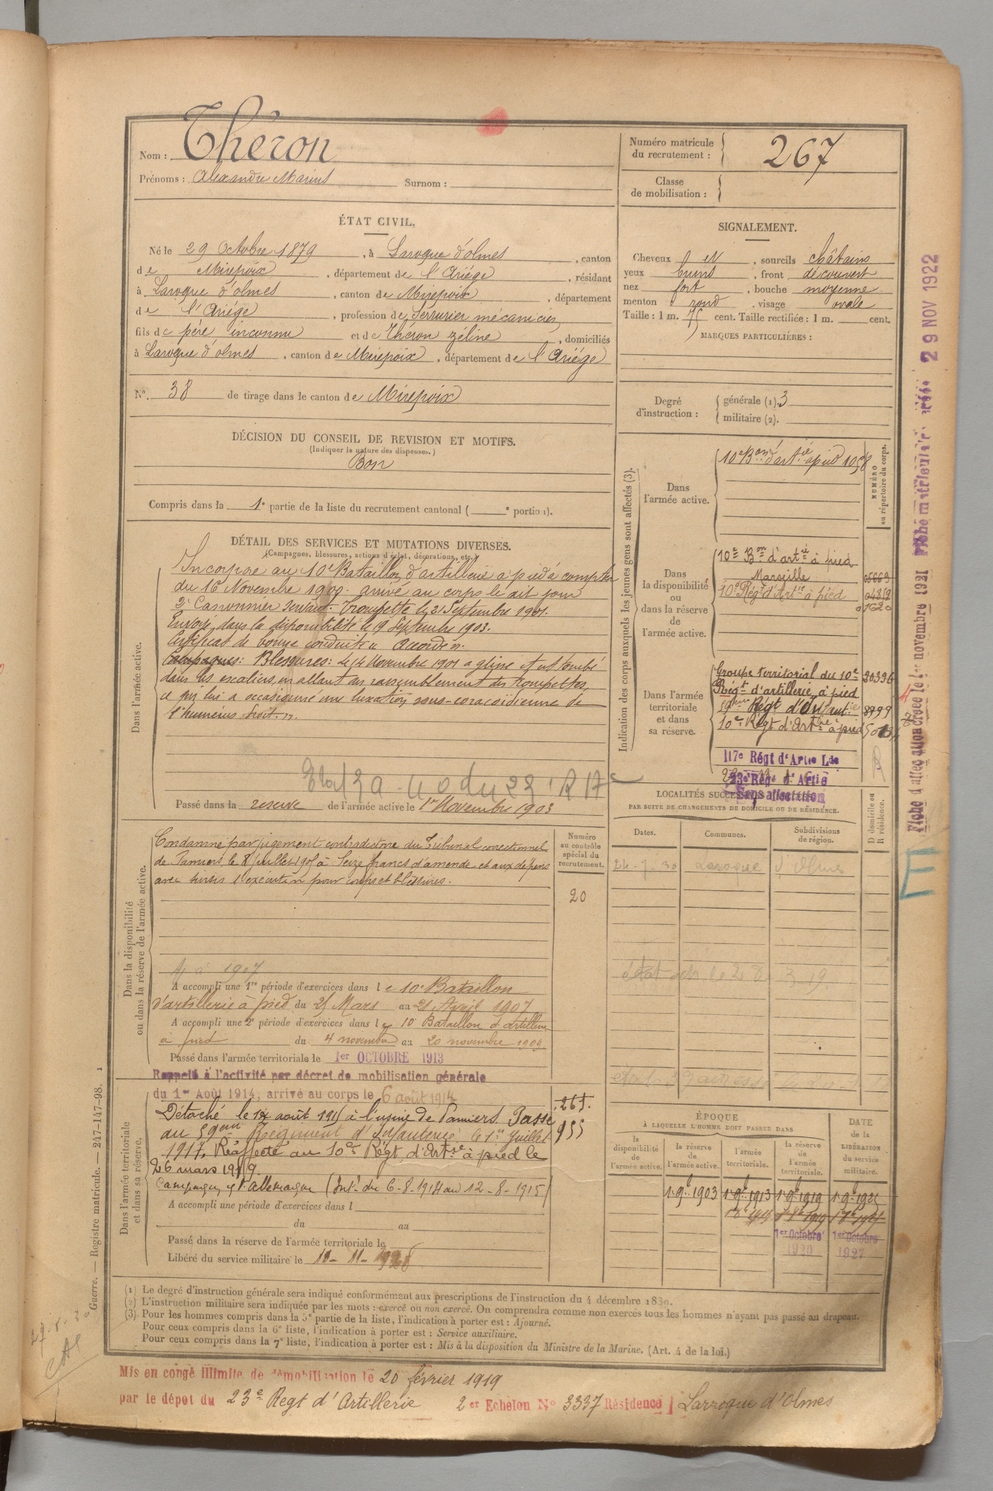 Nom : Théron
Prénoms : Alexandre Marius Surnom :
Numéro matricule du recrutement : 267
Classe de mobilisation :
ÉTAT CIVIL.
Né le 29 Octobre 1879, à Laroque d'olmes, canton
de Mirepoix, département de l'Ariége, résidant
à Laroque d'olmes, canton de Mirepoix, département
de l'Ariége, profession de Serrurier mécanicien,
fils de père inconnu et de Théron Zéline, domiciliés
à Laroque d'olmes, canton de Mirepoix, département de l'Ariége
N° 38 de tirage dans le canton de Mirepoix
SIGNALEMENT.
Cheveux et, sourcils châtains
yeux bruns, front découvert
nez fort, bouche moyenne
menton rond, visage ovale
Taille : 1 m. 75 cent. Taille rectifiée : 1 m. cent.
MARQUES PARTICULIÈRES :
Degré d'instruction : générale (1) 3
militaire (2).
DÉCISION DU CONSEIL DE REVISION ET MOTIFS.
(Indiquer la nature des dispenses.)
Bon
Compris dans la 1e partie de la liste du recrutement cantonal ( e portion).
DÉTAIL DES SERVICES ET MUTATIONS DIVERSES.
(Campagnes, blessures, actions d'éclat, décorations, etc.)
Dans l'armée active.
Incorporé au 10e Bataillon d'artillerie à pied à compter
du 16 Novembre 1900. arrivé au corps le dit jour
2e Cannonier servant. Trompette le 21 Septembre 1901.
Envoyé dans la disponibilité le 19 Septembre 1903.
Certificat de bonne conduite accordé
Campagnes: Blessures: le 14 Novembre 1901 a glissé et est tombé
dans les escaliers en allant au rassemblement des trompettes,
ce qui lui a occasionné une luxation sous-coracoïdienne de
l'humérus droit.
Passé dans la réserve de l'armée active le 1er Novembre 1903
Indication des corps auxquels les jeunes gens sont affectés (3).
NUMÉRO au répertoire du corps.
Dans l'armée active.
10e Bon d'artie à pied 1058
Dans la disponibilité ou dans la réserve de l'armée active.
10e Bon d'artie à pied
Marseille
10e Régt d'Artie à pied
Dans l'armée territoriale et dans sa réserve.
Groupe territorial du 10e
Régt d'artillerie à pied
59eme Régt d'Infanterie
10e Régt d'Artie à pied
117e Régt d'Artie Lde
23e Régt d'Artie
Sans affectation
LOCALITÉS SUCCESSIVES
PAR SUITE DE CHANGEMENTS DE DOMICILE OU DE RÉSIDENCE.
Dates. Communes. Subdivisions de région. D domicile ou R résidence.
24-7-30 Laroque d'Olmes
Dans la disponibilité ou dans la réserve de l'armée active.
Numéro au contrôle spécial du recrutement.
20
Condamné par jugement contradictoire du Tribunal correctionnel
de Pamiers le 8 juillet 1905 à Seize francs d'amende et aux dépens
avec sursis à l'exécution pour coups et blessures.
A accompli une 1re période d'exercices dans le 10e Bataillon
d'artillerie à pied du 25 Mars au 21 Avril 1907
A accompli une 2e période d'exercices dans le 10e Bataillon d'artillerie
à pied du 4 novembre au 20 novembre 1908
Passé dans l'armée territoriale le 1er OCTOBRE 1913
Rappelé à l'activité par décret de mobilisation générale
du 1er Août 1914, arrivé au corps le 6 août 1914
Dans l'armée territoriale et dans sa réserve.
Détaché le 12 août 1915 à l'usine de Pamiers Passé
au 59eme Régiment d'Infanterie le 1er Juillet
1917, Réaffecté au 10e Régt d'Artie à pied le
26 mars 1919
Campagne contre l'Allemagne (Int. du 6-8-1914 au 12-8-1915)
265
955
A accompli une période d'exercices dans l
du au
Passé dans la réserve de l'armée territoriale le
Libéré du service militaire le 10-11-1928
ÉPOQUE
À LAQUELLE L'HOMME DOIT PASSER DANS
la disponibilité de l'armée active. la réserve de l'armée active. l'armée territoriale. la réserve de l'armée territoriale. DATE de la LIBÉRATION du service militaire.
1 9bre 1903 1 9bre 1913 1 9bre 1919 1 9bre 1925
1er Octobre 1920 1er Octobre 1927
(1) Le degré d'instruction générale sera indiqué conformément aux prescriptions de l'Instruction du 4 décembre 1889.
(2) L'instruction militaire sera indiquée par les mots : exercé ou non exercé. On comprendra comme non exercés tous les hommes n'ayant pas passé au drapeau.
(3) Pour les hommes compris dans la 5e partie de la liste, l'indication à porter est : Ajourné.
Pour ceux compris dans la 6e liste, l'indication à porter est : Service auxiliaire.
Pour ceux compris dans la 7e liste, l'indication à porter est : Mis à la disposition du Ministre de la Marine. (Art. 4 de la loi.)
Mis en congé illimité de démobilisation le 20 février 1919
par le dépôt du 23e Regt d'Artillerie 2er Echelon N° 3337 Résidence Larroque d'Olmes
Guerre. — Registre matricule. — 247-147-98.
Fiche d'affectation créée le 1er novembre 1921
29 NOV 1922